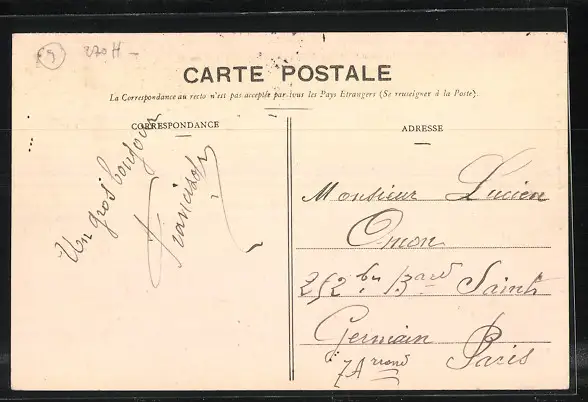 9
270 H -
CARTE POSTALE
La Correspondance au recto n'est pas acceptée par tous les Pays Etrangers (Se renseigner à la Poste).
CORRESPONDANCE
ADRESSE
Un gros bonjour
Francisch
Monsieur Lucien
Omon
252 bis Bard Saint
Germain Paris
7 Arrond